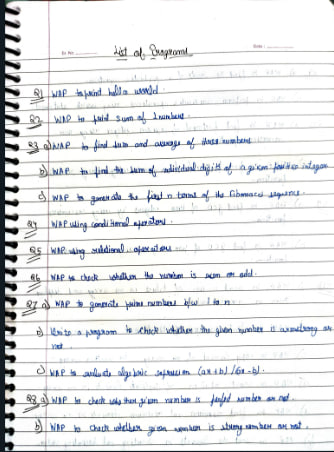 Sr. No.
Date :
List of Programs
Q1 WAP to print hello world.
Q2 WAP to print sum of 2 numbers.
Q3 a) WAP to find sum and average of three numbers
b) WAP to find the sum of individual digits of a given positive integer
c) WAP to generate the first n terms of the Fibonacci sequence.
Q4 WAP using conditional operators.
Q5 WAP using relational operators
Q6 WAP to check whether the number is even or odd.
Q7 a) WAP to generate prime numbers b/w 1 to n.
b) Write a program to check whether the given number is armstrong or
not.
c) WAP to evaluate algebraic expression (ax+b)/(ax-b).
Q8 a) WAP to check whether given number is perfect number or not.
b) WAP to check whether given number is strong number or not.